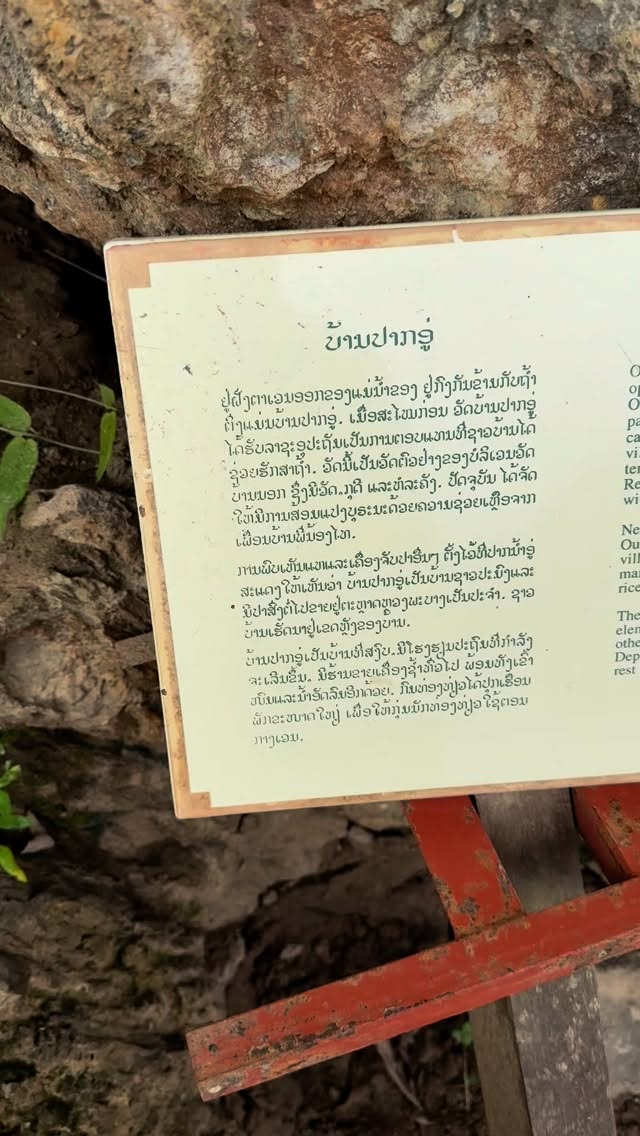 ບ້ານປາກອູ່
ຢູ່ຝັ່ງຕາເວນອອກຂອງແມ່ນ້ຳຂອງ ຢູ່ກົງກັນຂ້າມກັບຖ້ຳ
ຕິ່ງແມ່ນບ້ານປາກອູ່. ເມື່ອສະໄໝກ່ອນ ວັດບ້ານປາກອູ່
ໄດ້ຮັບລາຊະອຸປະຖັນເປັນການຕອບແທນທີ່ຊາວບ້ານໄດ້
ຊ່ວຍຮັກສາຖ້ຳ. ວັດນີ້ເປັນວັດຕົວຢ່າງຂອງບໍລິເວນວັດ
ບ້ານນອກ ຊຶ່ງມີວັດ, ກຸດີ ແລະຫໍລະຄັງ. ປັດຈຸບັນ ໄດ້ຈັດ
ໃຫ້ມີການສ້ອມແປງບູຣະນະດ້ວຍຄວາມຊ່ວຍເຫຼືອຈາກ
ເພື່ອນບ້ານພີ່ນ້ອງໄທ.
ການພົບເຫັນແຫແລະເຄື່ອງຈັບປາອື່ນໆ ຕັ້ງໄວ້ທີ່ປາກນ້ຳອູ່
ສະແດງໃຫ້ເຫັນວ່າ ບ້ານປາກອູ່ເປັນບ້ານຊາວປະມົງແລະ
ມີປາສົ່ງຕໍ່ໄປຂາຍຢູ່ຕະຫຼາດຫຼວງພະບາງເປັນປະຈຳ. ຊາວ
ບ້ານເຮັດນາຢູ່ເຂດຫຼັງຂອງບ້ານ.
ບ້ານປາກອູ່ເປັນບ້ານທີ່ສງົບ, ມີໂຮງຮຽນປະຖົມທີ່ກຳລັງ
ຈະເລີນຂຶ້ນ. ມີຮ້ານຂາຍເຄື່ອງຊ້ຳທົ່ວໄປ ພ້ອມທັງເຂົ້າ
ໜົມແລະນ້ຳອັດລົມອີກດ້ວຍ. ກົມທ່ອງທ່ຽວໄດ້ປຸກເຮືອນ
ພັກຂະໜາດໃຫຍ່ ເພື່ອໃຫ້ກຸ່ມນັກທ່ອງທ່ຽວ ໃຊ້ຕອນ
ກາງເວນ.
Ou
vill
mar
rice
The
elem
othe
Dep
rest